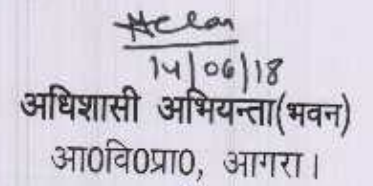 14/06/18
अधिशासी अभियन्ता(भवन)
आ0वि0प्रा0, आगरा।